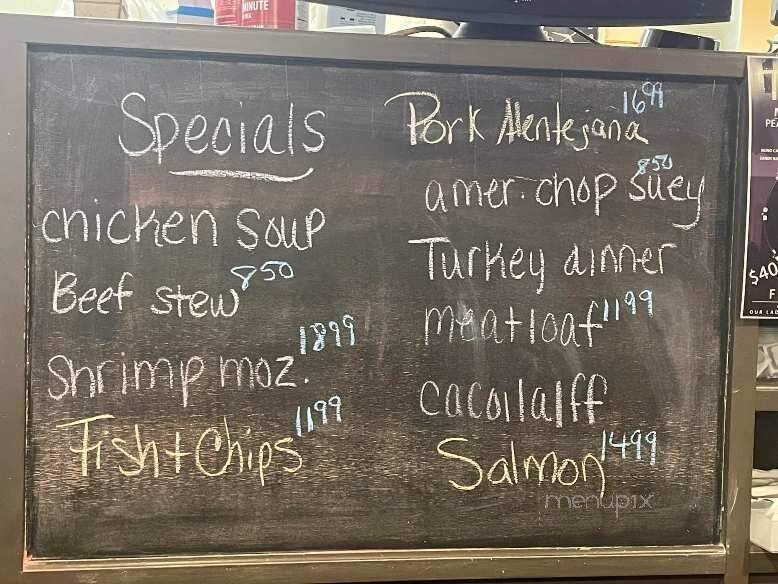 Specials
chicken soup
Beef stew 850
Shrimp moz. 1899
Fish + Chips 1199
Pork Alentejana 1699
amer. chop suey 850
Turkey dinner
meatloaf 1199
cacoila/ff
Salmon 1499
menupix
MINUTE
$40
F
OUR LAD